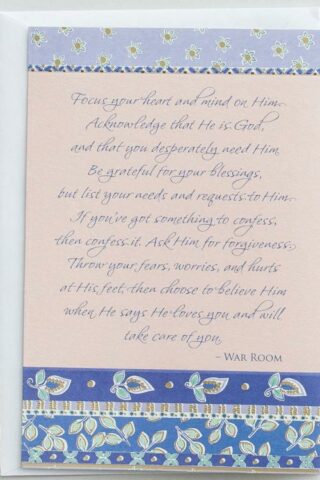 Focus your heart and mind on Him.
Acknowledge that He is God,
and that you desperately need Him.
Be grateful for your blessings,
but list your needs and requests to Him.
If you've got something to confess,
then confess it. Ask Him for forgiveness.
Throw your fears, worries, and hurts
at His feet, then choose to believe Him
when He says He loves you and will
take care of you.
– WAR ROOM